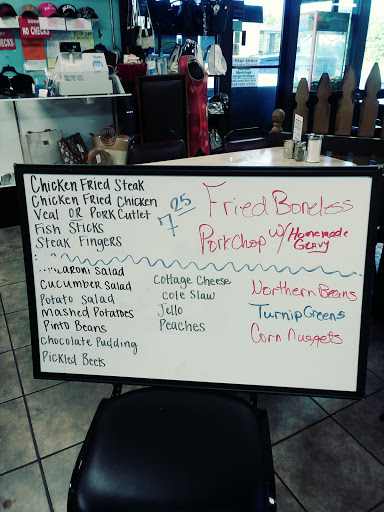 NO CHECKS
Chicken Fried Steak
Chicken Fried Chicken
Veal OR Pork Cutlet
Fish Sticks
Steak Fingers
7 25
Fried Boneless
Pork Chop w/ Homemade
Gravy
Salad
Cucumber Salad
Potato Salad
Mashed Potatoes
Pinto Beans
Chocolate Pudding
Pickled Beets
Cottage Cheese
Cole Slaw
Jello
Peaches
Northern Beans
Turnip Greens
Corn Nuggets